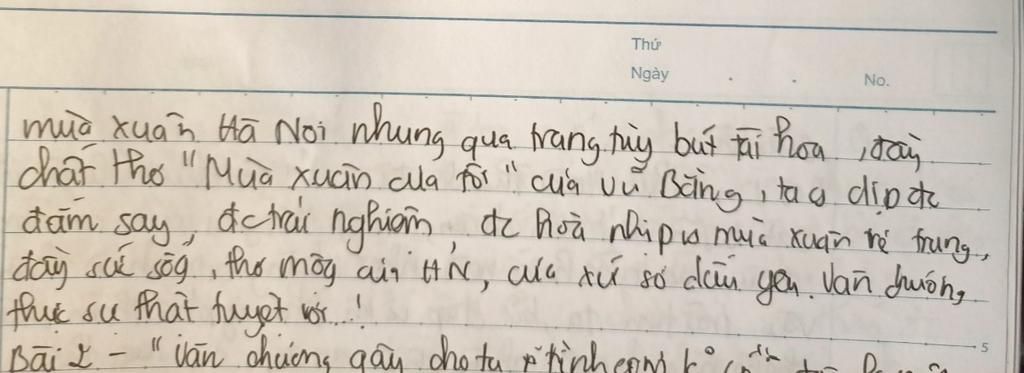 Thứ
Ngày . . No.
mùa xuân Hà Nội nhưng qua trang tùy bút tài hoa, đầy
chất thơ "Mùa xuân của tôi" của Vũ Bằng, ta có dịp đc
đắm say, đc trải nghiệm, đc hoà nhịp vs mùa xuân trẻ trung,
đầy sức sốg, thơ mộg của HN, của xứ sở dấu yêu. Văn chương
thực sự thật tuyệt vời..!
5
Bài 2 - "Văn chương gây cho ta